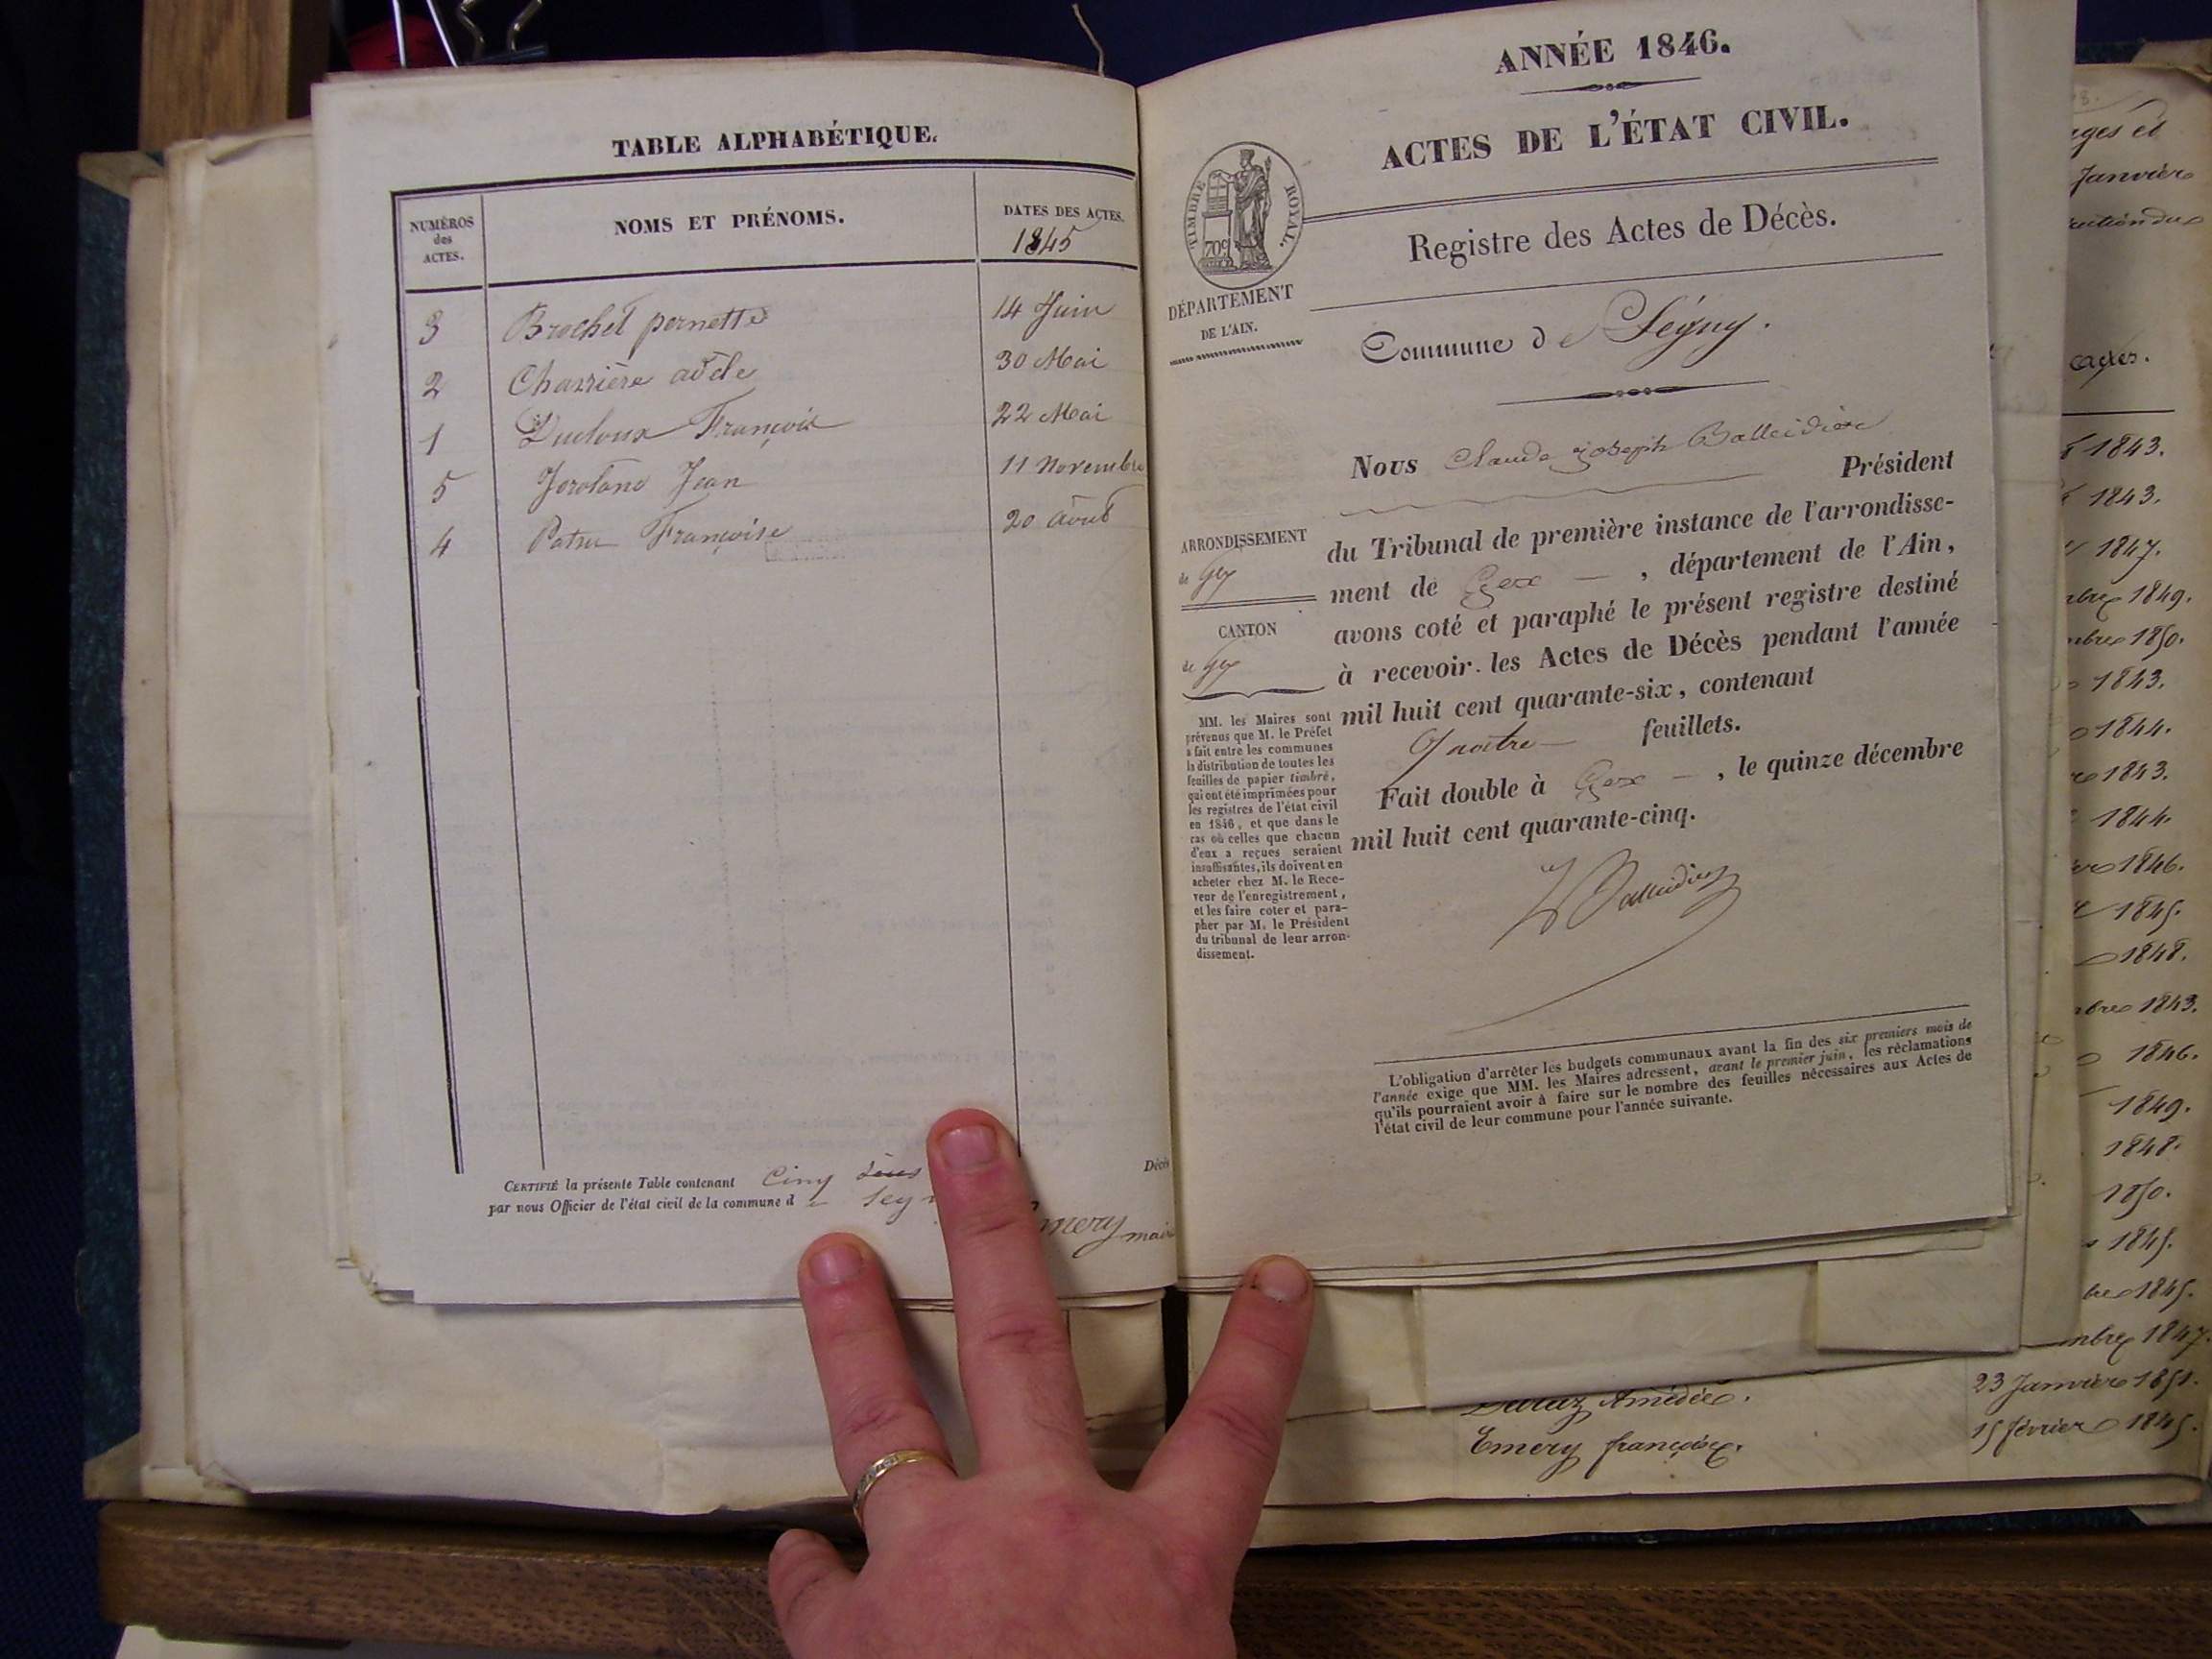 TABLE ALPHABÉTIQUE.
NUMÉROS
des
ACTES.
NOMS ET PRÉNOMS.
DATES DES ACTES.
1845
3 Brochet pernette 14 Juin
2 Charrière adèle 30 Mai
1 Ducloux François 22 Mai
5 Jean 11 Novembre
4 Patru Françoise 20 août
CERTIFIÉ la présente Table contenant Cinq Décès
par nous Officier de l'état civil de la commune de
maire
ANNÉE 1846.
ACTES DE L'ÉTAT CIVIL.
TIMBRE ROYAL.
70c
DÉPARTEMENT
DE L'AIN.
Registre des Actes de Décès.
Commune de Ségny.
Nous Claude joseph Balleidier
Président
du Tribunal de première instance de l'arrondisse-
ment de Gex — , département de l'Ain,
avons coté et paraphé le présent registre destiné
à recevoir les Actes de Décès pendant l'année
mil huit cent quarante-six, contenant
quatre — feuillets.
Fait double à Gex — , le quinze décembre
mil huit cent quarante-cinq.
Balleidier
ARRONDISSEMENT
de Gex
CANTON
de Gex
MM. les Maires sont
prévenus que M. le Préfet
a fait entre les communes
la distribution de toutes les
feuilles de papier timbré,
qui ont été imprimées pour
les registres de l'état civil
en 1846, et que dans le
cas où celles que chacun
d'eux a reçues seraient
insuffisantes, ils doivent en
acheter chez M. le Rece-
veur de l'enregistrement,
et les faire coter et para-
pher par M. le Président
du tribunal de leur arron-
dissement.
L'obligation d'arrêter les budgets communaux avant la fin des six premiers mois de
l'année exige que MM. les Maires adressent, avant le premier juin, les réclamations
qu'ils pourraient avoir à faire sur le nombre des feuilles nécessaires aux Actes de
l'état civil de leur commune pour l'année suivante.
Janvier
actes.
1843.
1843.
1847.
1849.
1850.
1843.
1844.
1843.
1844.
1846.
1845.
1848.
1843.
1846.
1849.
1848.
1850.
1845.
1845.
1847.
Amédée. 23 Janvier 1851.
Emery françoise. 15 février 1845.